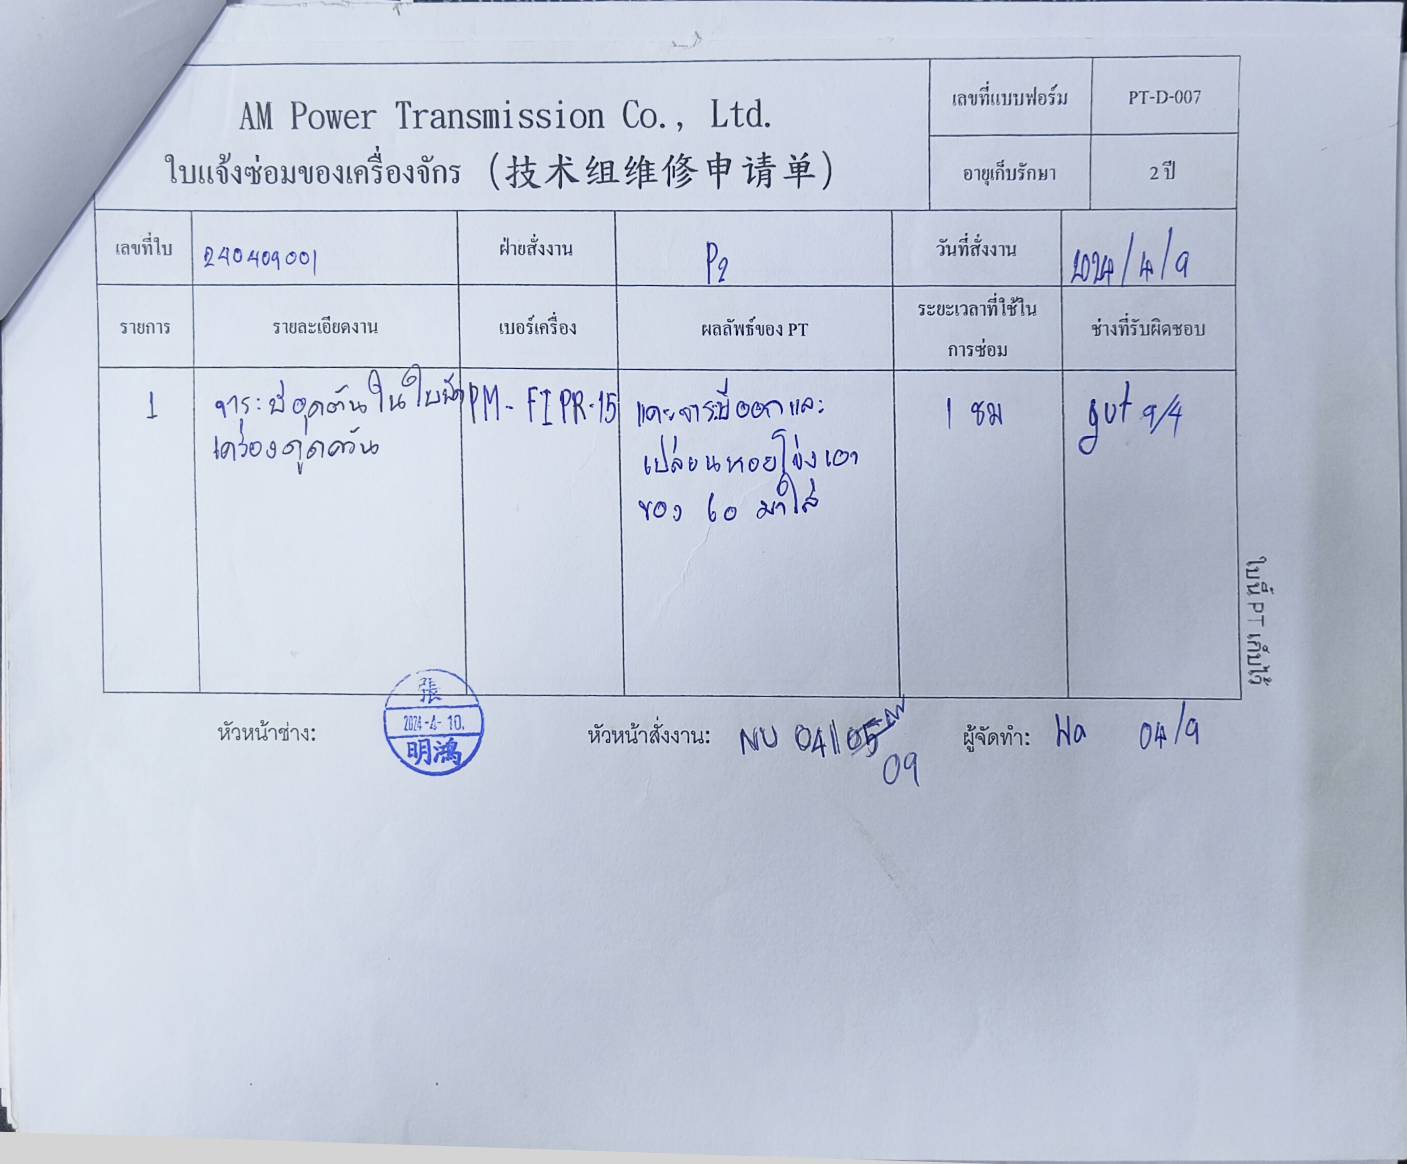 AM Power Transmission Co., Ltd.
ใบแจ้งซ่อมของเครื่องจักร (技术组维修申请单)
เลขที่แบบฟอร์ม PT-D-007
อายุเก็บรักษา 2 ปี
เลขที่ใบ 240409001 ฝ่ายสั่งงาน P2 วันที่สั่งงาน 2024/4/9
รายการ รายละเอียดงาน เบอร์เครื่อง ผลลัพธ์ของ PT ระยะเวลาที่ใช้ใน ช่างที่รับผิดชอบ
การซ่อม
1 จาระบีอุดตันในใบพัด PM-FIPR-15 แคะจาระบีออกและ 1 ชม gut 9/4
เครื่องดูดควัน เปลี่ยนหอยโข่งเอา
ของ 60 มาใส่
ใบนี้ PT เก็บไว้
หัวหน้าช่าง: 張 2024-4-10. 明鴻
หัวหน้าสั่งงาน: NU 04/05 09
ผู้จัดทำ: Ha 04/9